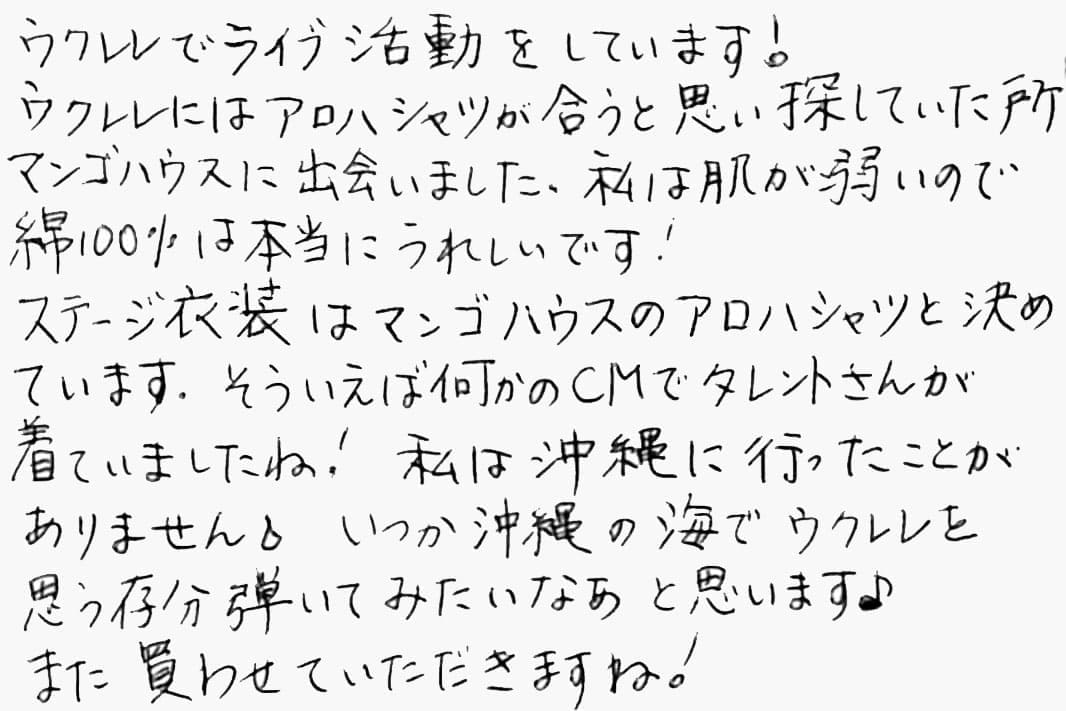 ウクレレでライブ活動をしています!
ウクレレにはアロハシャツが合うと思い探していた所
マンゴハウスに出会いました、私は肌が弱いので
綿100%は本当にうれしいです!
ステージ衣装はマンゴハウスのアロハシャツと決め
ています. そういえば何かのCMでタレントさんが
着ていましたね! 私は沖縄に行ったことが
ありません💧 いつか沖縄の海でウクレレを
思う存分弾いてみたいなあと思います♪
また買わせていただきますね!